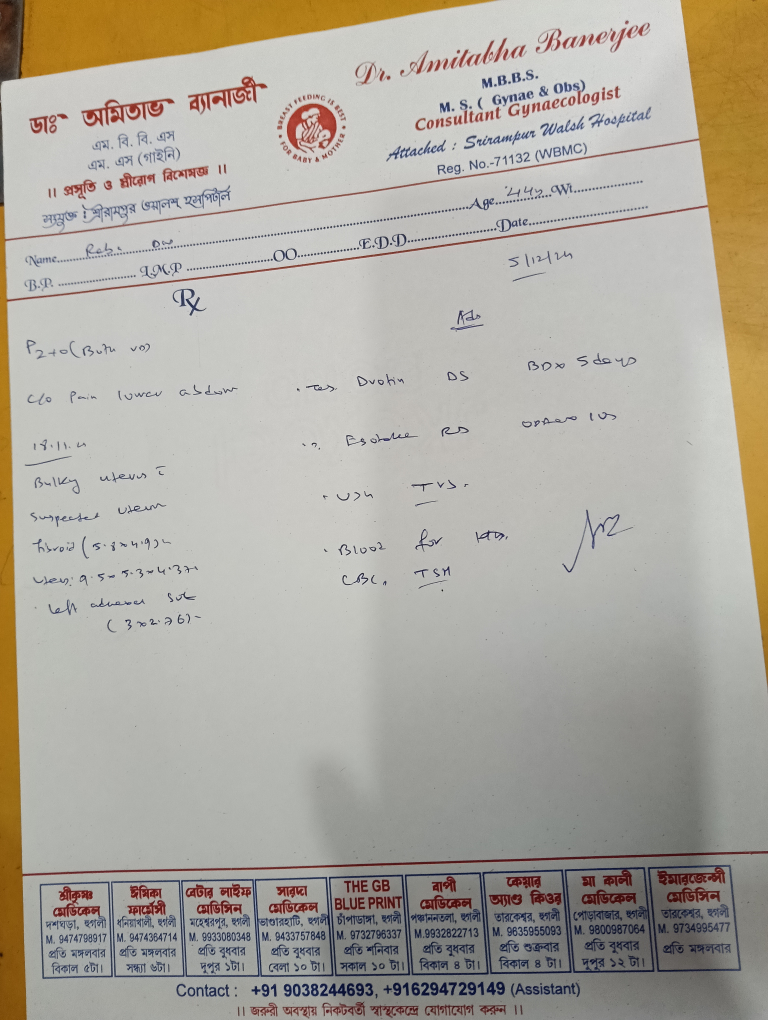 ডাঃ অমিতাভ ব্যানার্জী
এম. বি. বি. এস
এম. এস (গাইনি)
।। প্রসূতি ও স্ত্রীরোগ বিশেষজ্ঞ ।।
সংযুক্ত : শ্রীরামপুর ওয়ালশ হসপিটাল
BREAST FEEDING IS BEST
FOR BABY & MOTHER
Dr. Amitabha Banerjee
M.B.B.S.
M. S. ( Gynae & Obs)
Consultant Gynaecologist
Attached : Srirampur Walsh Hospital
Reg. No.-71132 (WBMC)
Name Age 44y Wt
B.P. L.M.P OO E.D.D Date
5/12/24
Rx
Adv
P2+0 (Both VD)
c/o Pain lower abdom
18.11.24
Bulky uterus
suspected uterine
fibroid (5.8x4.9)
Left adnexal
(3x2.76)
Tab. DS BDx 5 days
RD
USG TVS.
Blood for
CBC, TSH
শ্রীকৃষ্ণ মেডিকেল
দশঘড়া, হুগলী
M. 9474798917
প্রতি মঙ্গলবার
বিকাল ৫টা।
ঈষিকা ফার্মেসী
ধনিয়াখালী, হুগলী
M. 9474364714
প্রতি মঙ্গলবার
সন্ধ্যা ৬টা।
বেটার লাইফ মেডিসিন
মহেশ্বরপুর, হুগলী
M. 9933080348
প্রতি বুধবার
দুপুর ১টা।
সারদা মেডিকেল
ভাণ্ডারহাটি, হুগলী
M. 9433757848
প্রতি বুধবার
বেলা ১০ টা।
THE GB BLUE PRINT
চাঁপাডাঙ্গা, হুগলী
M. 9732796337
প্রতি শনিবার
সকাল ১০ টা।
বাপী মেডিকেল
পঞ্চাননতলা, হুগলী
M.9932822713
প্রতি বুধবার
বিকাল ৪ টা।
কেয়ার অ্যাণ্ড কিওর
তারকেশ্বর, হুগলী
M. 9635955093
প্রতি শুক্রবার
বিকাল ৪ টা।
মা কালী মেডিকেল
পোড়াবাজার, হুগলী
M. 9800987064
প্রতি বুধবার
দুপুর ১২ টা।
ইমারজেন্সী মেডিসিন
তারকেশ্বর, হুগলী
M. 9734995477
প্রতি মঙ্গলবার
Contact : +91 9038244693, +916294729149 (Assistant)
।। জরুরী অবস্থায় নিকটবর্তী স্বাস্থ্যকেন্দ্রে যোগাযোগ করুন ।।